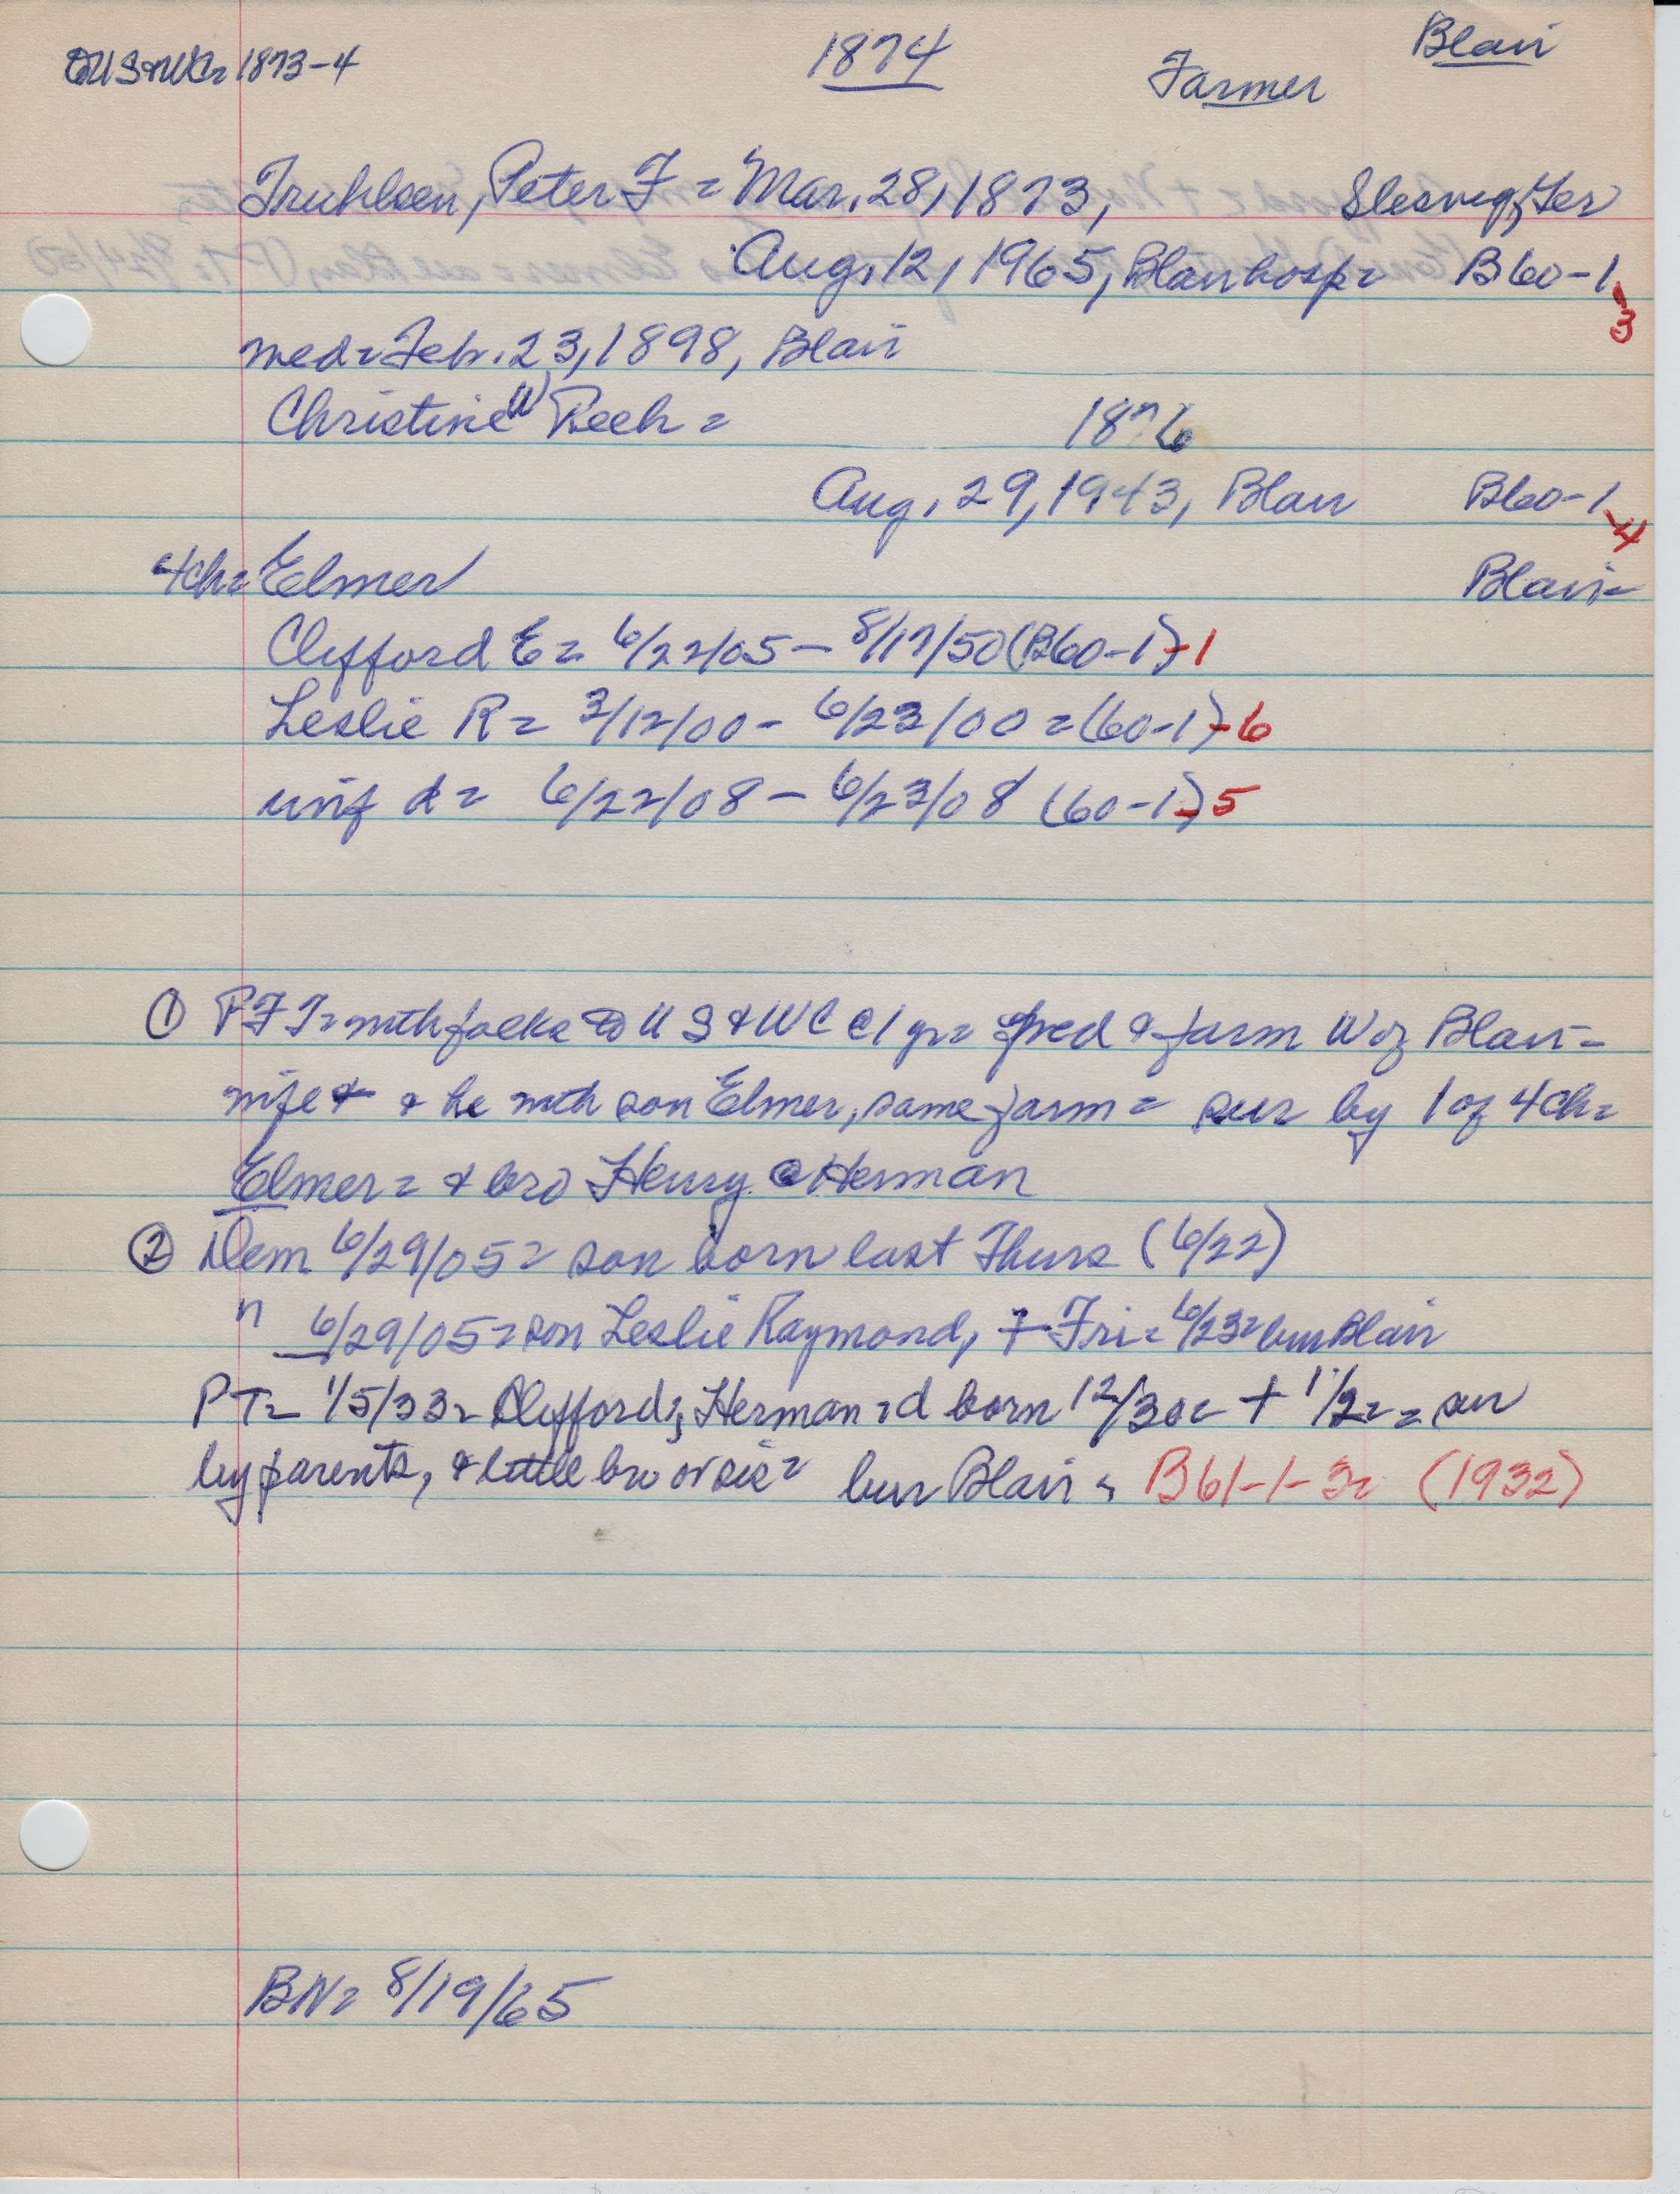 US&WC= 1873-4
1874
Farmer
Blair
Truhlsen, Peter F = Mar. 28, 1873, Slesvig, Ger
Aug. 12, 1965, Blair hosp= B60-1-3
med= Feb. 23, 1898, Blair
Christine W Reeh = 1876
Aug. 29, 1943, Blair B60-1-4
4ch= Elmer Blair=
Clifford E= 6/22/05 - 8/17/50 (B60-1)-1
Leslie R= 3/12/00 - 6/23/00 = (60-1)-6
inf d= 6/22/08 - 6/23/08 (60-1)-5
① PFT= with folks to US & WC @ 1 yr= & farm W of Blair=
wife + & he with son Elmer, same farm= sur by 1 of 4ch=
Elmer= & bro Henry & Herman
② Dem 6/29/05= son born last Thurs (6/22)
" 6/29/05= son Leslie Raymond, + Fri= 6/23= bur Blair
PT= 1/5/33= Clifford; Herman= d born 12/30= + 1/2= = sur
by parents, & little bro or sis= bur Blair= B61-1-3= (1932)
BN= 8/19/65